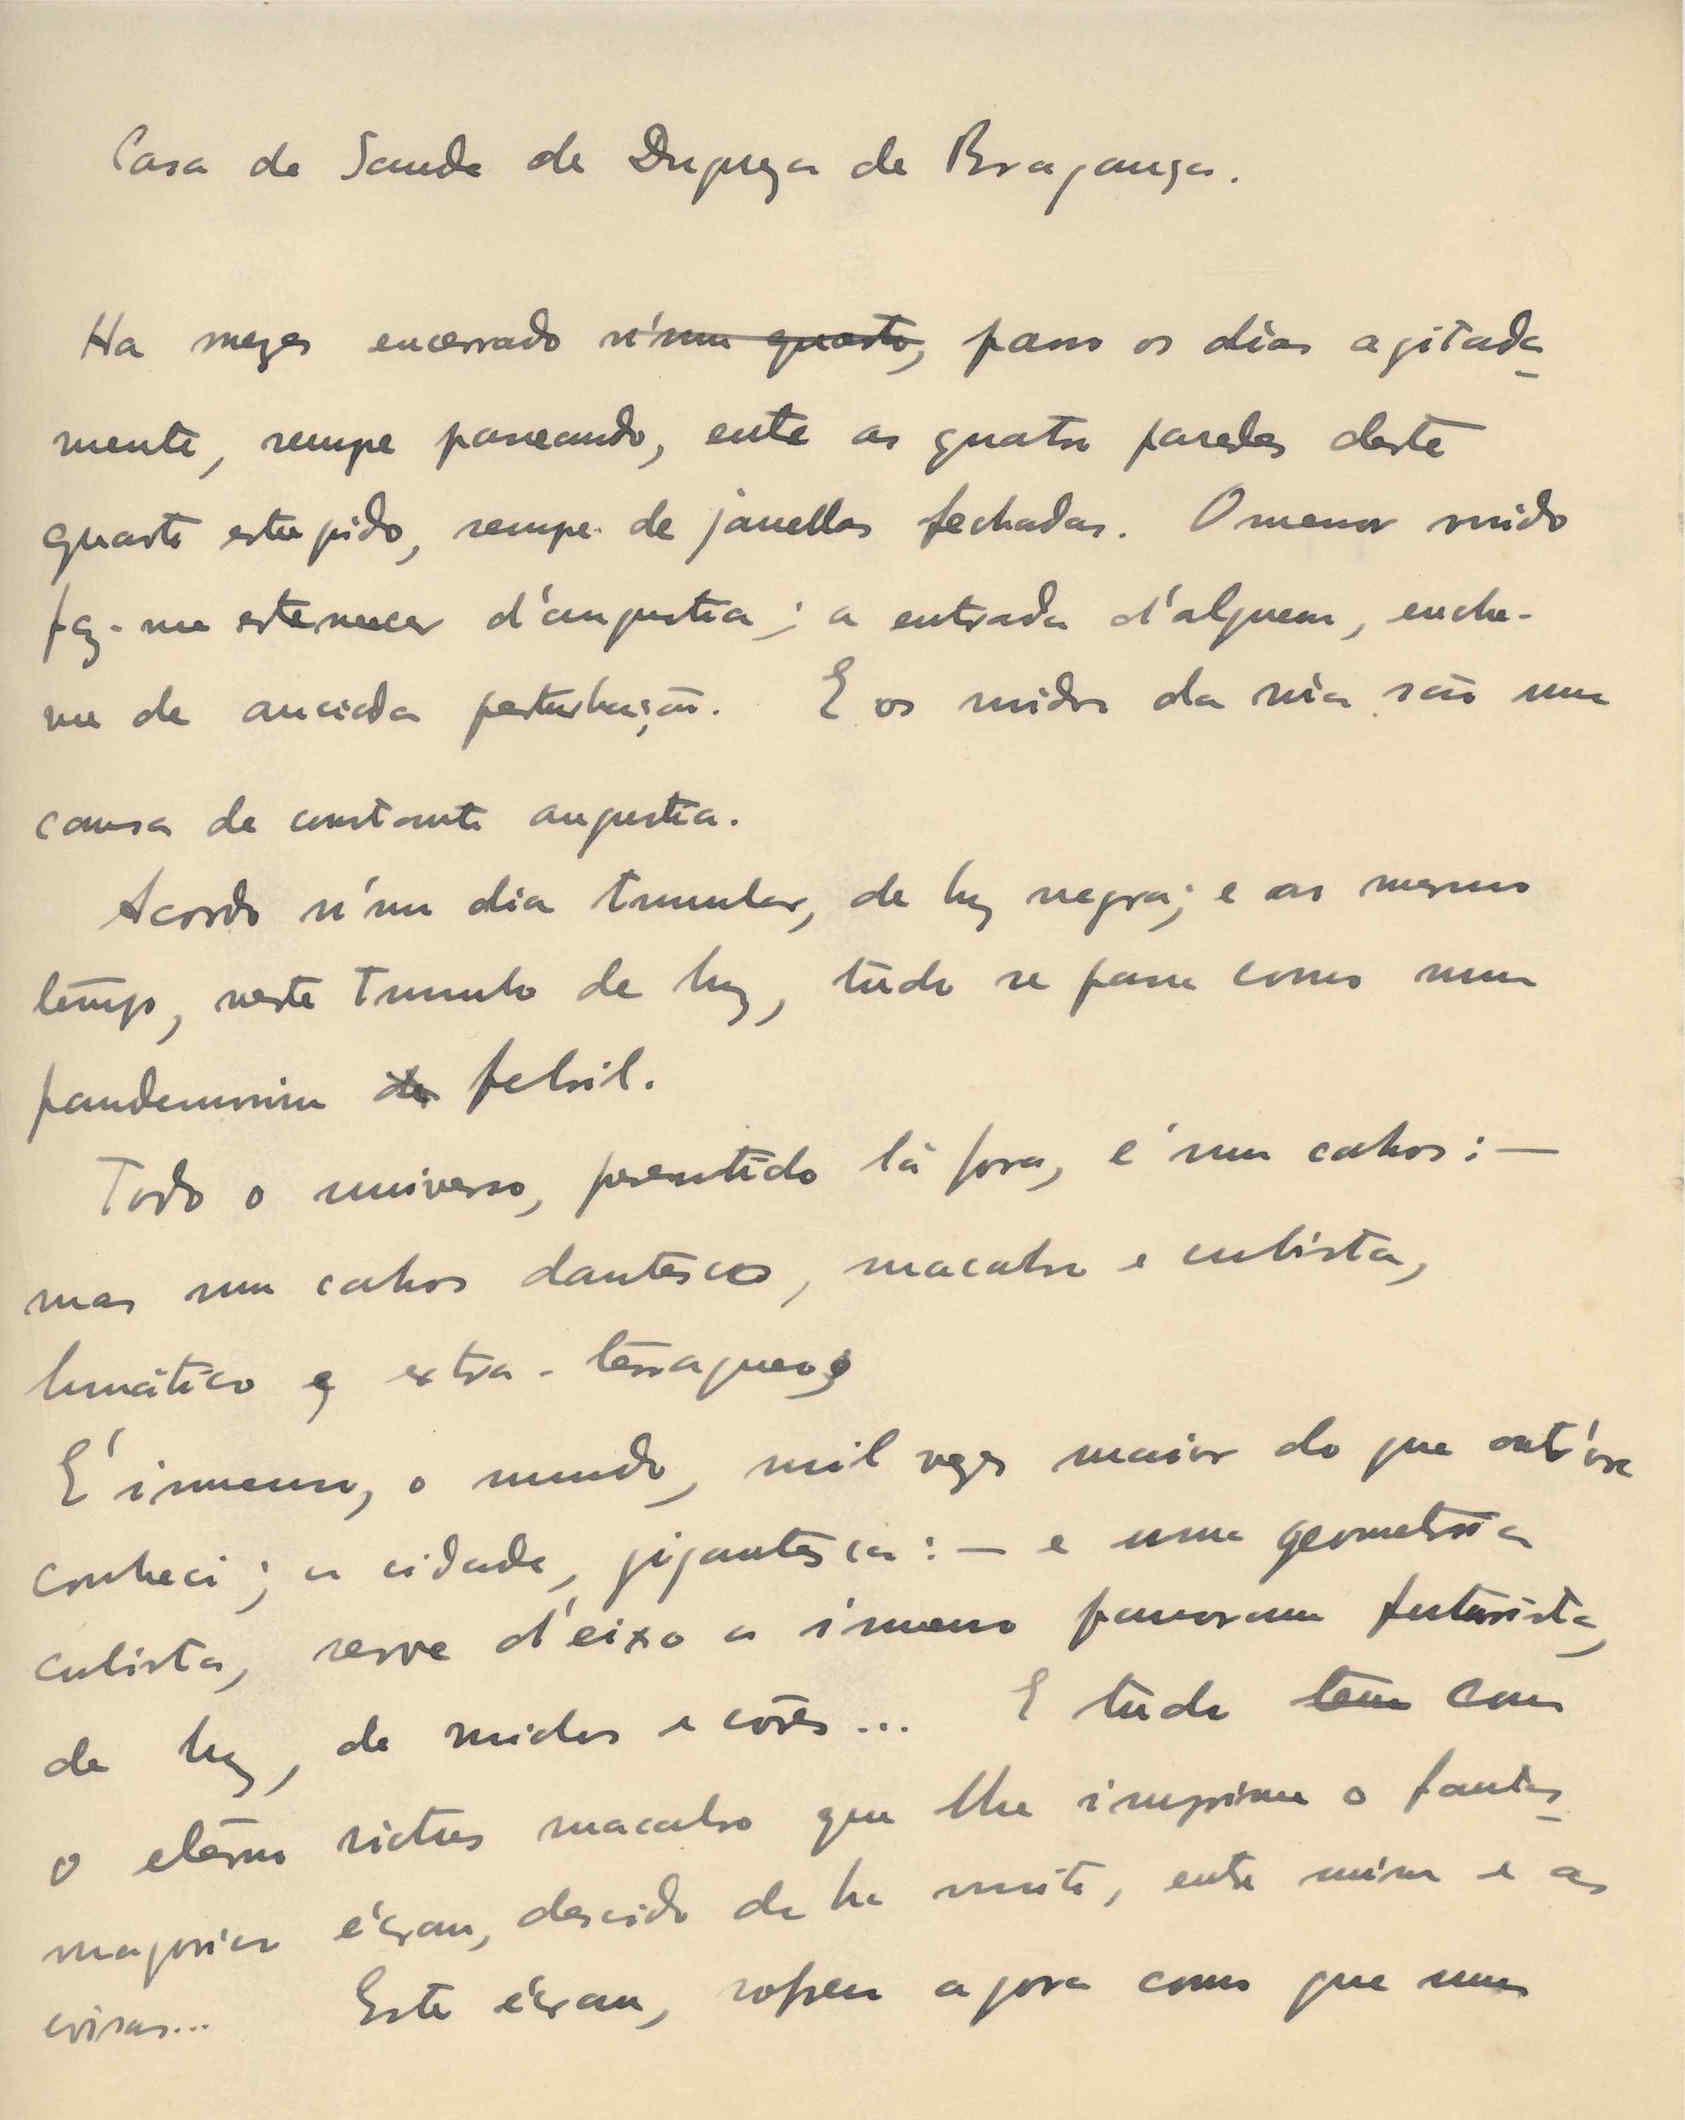 Casa de Saude de Dupeza de Bragança.
Ha mezes encerrado n'um quarto, passo os dias agitada-
mente, sempre passeando, entre as quatro paredes deste
quarto estupido, sempre de janellas fechadas. O menor ruido
faz-me estremecer d'angustia; a entrada d'alguem, enche-
me de anciada perturbação. E os ruidos da rua são uma
causa de constante angustia.
Acordo n'um dia tumular, de luz negra; e ao mesmo
tempo, neste tumulo de luz, tudo se passa como num
pandemonium de febril.
Todo o universo, presentido lá fora, é um cahos: —
mas um cahos dantesco, macabro e cubista,
lunático e extra-terraqueo;
É immenso, o mundo, mil vezes maior do que outr'ora
conheci; a cidade, gigantesca: — e uma geometria
cubista, serve d'eixo a immenso panorama futurista,
de luz, de ruidos e côres... E tudo tem com
o eterno rictus macabro que lhe imprime o fantas-
magorico écran, descido de ha muito, entre mim e as
coisas... Este écran, sofreu agora como que uma